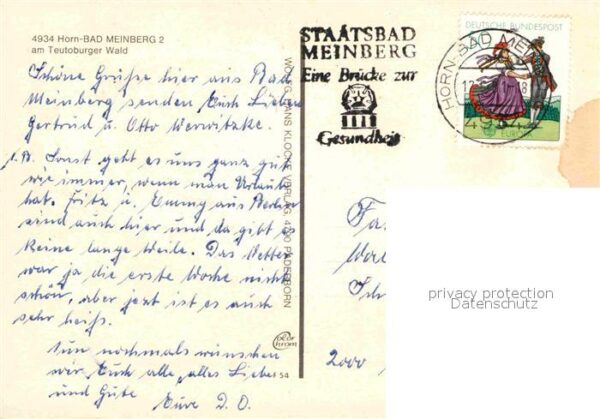 4934 Horn-BAD MEINBERG 2
am Teutoburger Wald
Schöne Grüße hier aus Bad
Meinberg senden Euch Liebe
Gertrud u. Otto Werwitzke.
Sonst geht es uns ganz gut
wie immer, wenn man Urlaub
hat. Fritz u. Emmy aus Berlin
sind auch hier und da gibt es
keine lange Weile. Das Wetter
war ja die erste Woche nicht
schön, aber jezt ist es auch
sehr heiß.
Nun nochmals wünschen
wir Euch alle, alles Liebe
und Gute
Eure
WOLFGANG HANS KLOCKE VERLAG, 4790 PADERBORN
color
chrom
54
STAATSBAD
MEINBERG
Eine Brücke zur
Gesundheit
HORN-BAD MEINBERG
DEUTSCHE BUNDESPOST
EUROPA
2000
privacy protection
Datenschutz